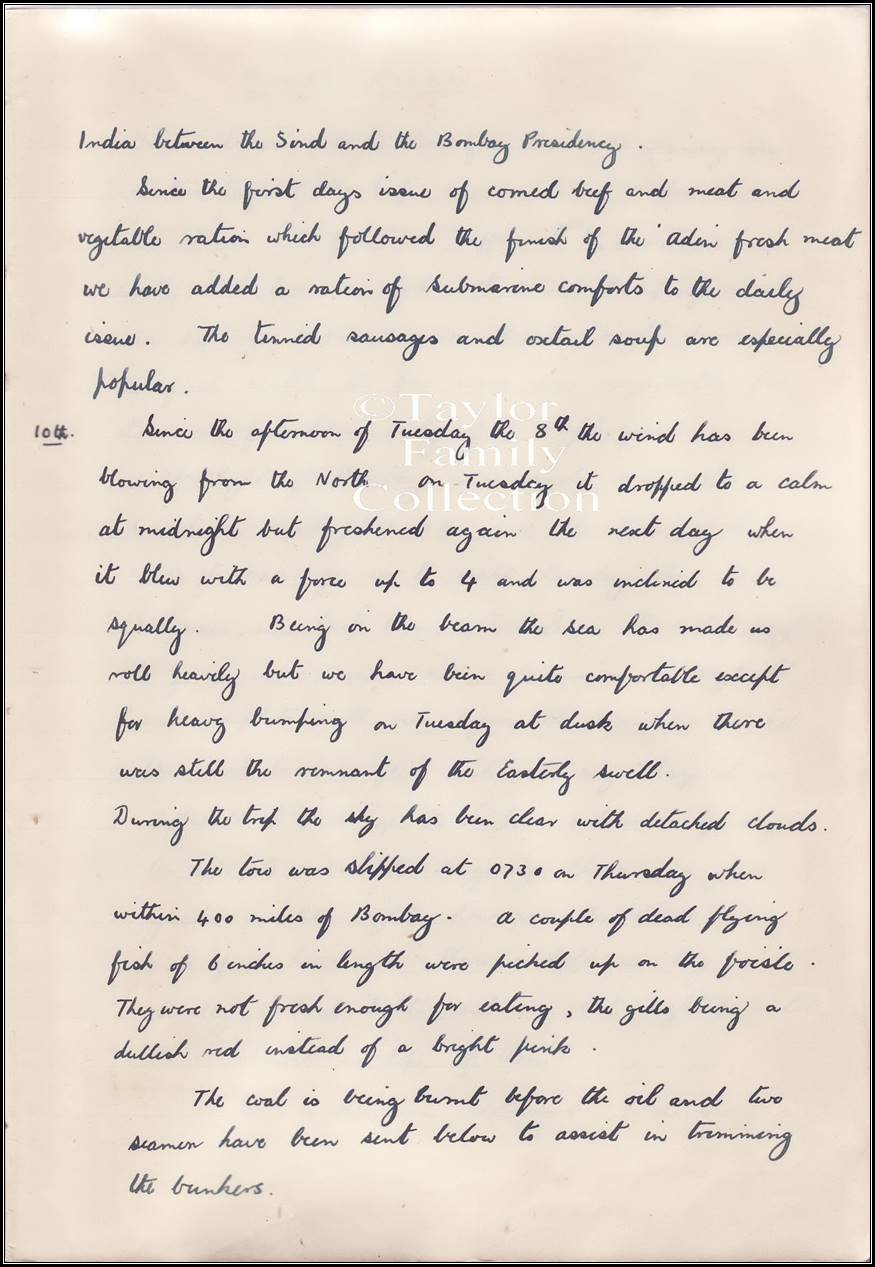 India between the Sind and the Bombay Presidency .
Since the first days issue of corned beef and meat and
vegetable ration which followed the finish of the 'Aden fresh meat
we have added a ration of submarine comforts to the daily
issue . The tinned sausages and oxtail soup are especially
popular .
©Taylor
Family
Collection
10th. Since the afternoon of Tuesday the 8th the wind has been
blowing from the North on Tuesday it dropped to a calm
at midnight but freshened again the next day when
it blew with a force up to 4 and was inclined to be
squally . Being on the beam the sea has made us
roll heavily but we have been quite comfortable except
for heavy bumping on Tuesday at dusk when there
was still the remnant of the Easterly swell .
During the trip the sky has been clear with detached clouds .
The tow was slipped at 0730 on Thursday when
within 400 miles of Bombay . A couple of dead flying
fish of 6 inches in length were picked up on the foisle .
They were not fresh enough for eating , the gills being a
dullish red instead of a bright pink .
The coal is being burnt before the oil and two
seamen have been sent below to assist in trimming
the bunkers .